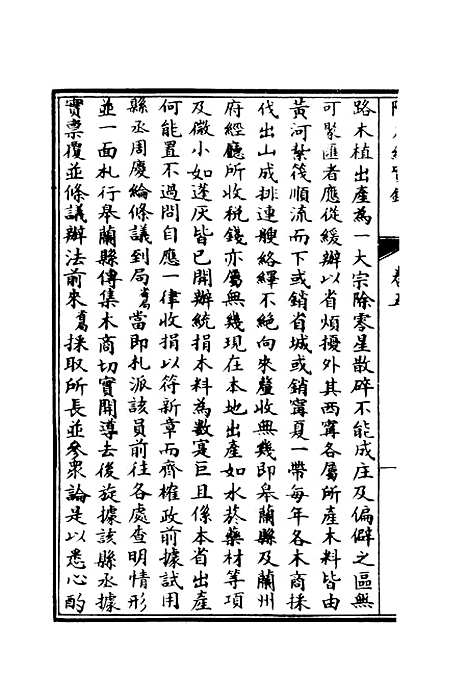 路木植出產為一大宗除零星散碎不能成庄及偏僻之區無
可聚匯者應從緩辦以省煩擾外其西寧各屬所產木料皆由
黃河紮筏順流而下或銷省城或銷寧夏一帶每年各木商採
伐出山成排連艘絡繹不絕向來釐收無幾即皋蘭縣及蘭州
府經廳所收稅錢亦屬無幾現在本地出產如水菸藥材等項
及微小如蓬灰皆已開辦統捐木料為數寔巨且係本省出產
何能置不過問自應一律收捐以符新章而齊榷政前據試用
縣丞周慶綸條議到局當即札派該員前往各處查明情形
並一面札行皋蘭縣傳集木商切實開導去後旋據該縣丞據
實稟覆並條議辦法前來採取所長並參眾論是以悉心酌
卷五